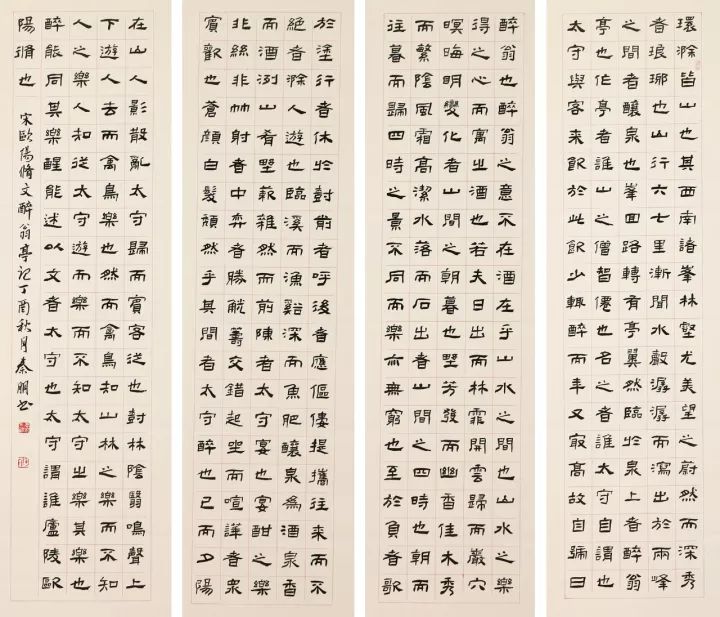 環滁皆山也其西南諸峯林壑尤美望之蔚然而深秀
者琅琊也山行六七里漸聞水聲潺潺而瀉出於兩峰
之間者釀泉也峯回路轉有亭翼然臨於泉上者醉翁
亭也作亭者誰山之僧智僊也名之者誰太守自謂也
太守與客來飲於此飲少輒醉而年又最高故自號曰
醉翁也醉翁之意不在酒在乎山水之間也山水之樂
得之心而寓之酒也若夫日出而林霏開雲歸而巖穴
暝晦明變化者山間之朝暮也野芳發而幽香佳木秀
而繁陰風霜高潔水落而石出者山間之四時也朝而
往暮而歸四時之景不同而樂亦無窮也至於負者歌
於塗行者休於樹前者呼後者應傴僂提攜往來而不
絕者滁人遊也臨溪而漁谿深而魚肥釀泉為酒泉香
而酒洌山肴野蔌雜然而前陳者太守宴也宴酣之樂
非絲非竹射者中弈者勝觥籌交錯起坐而喧譁者眾
賓歡也蒼顏白髮頹然乎其間者太守醉也已而夕陽
在山人影散亂太守歸而賓客從也樹林陰翳鳴聲上
下遊人去而禽鳥樂也然而禽鳥知山林之樂而不知
人之樂人知從太守遊而樂而不知太守之樂其樂也
醉能同其樂醒能述以文者太守也太守謂誰廬陵歐
陽脩也 宋歐陽脩文醉翁亭記丁酉秋月秦朋書